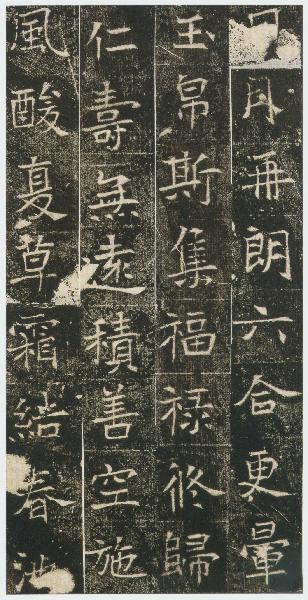 月再朗六合更暈
玉帛斯集福祿攸歸
仁壽無遠積善空施
風酸夏草霜結春池